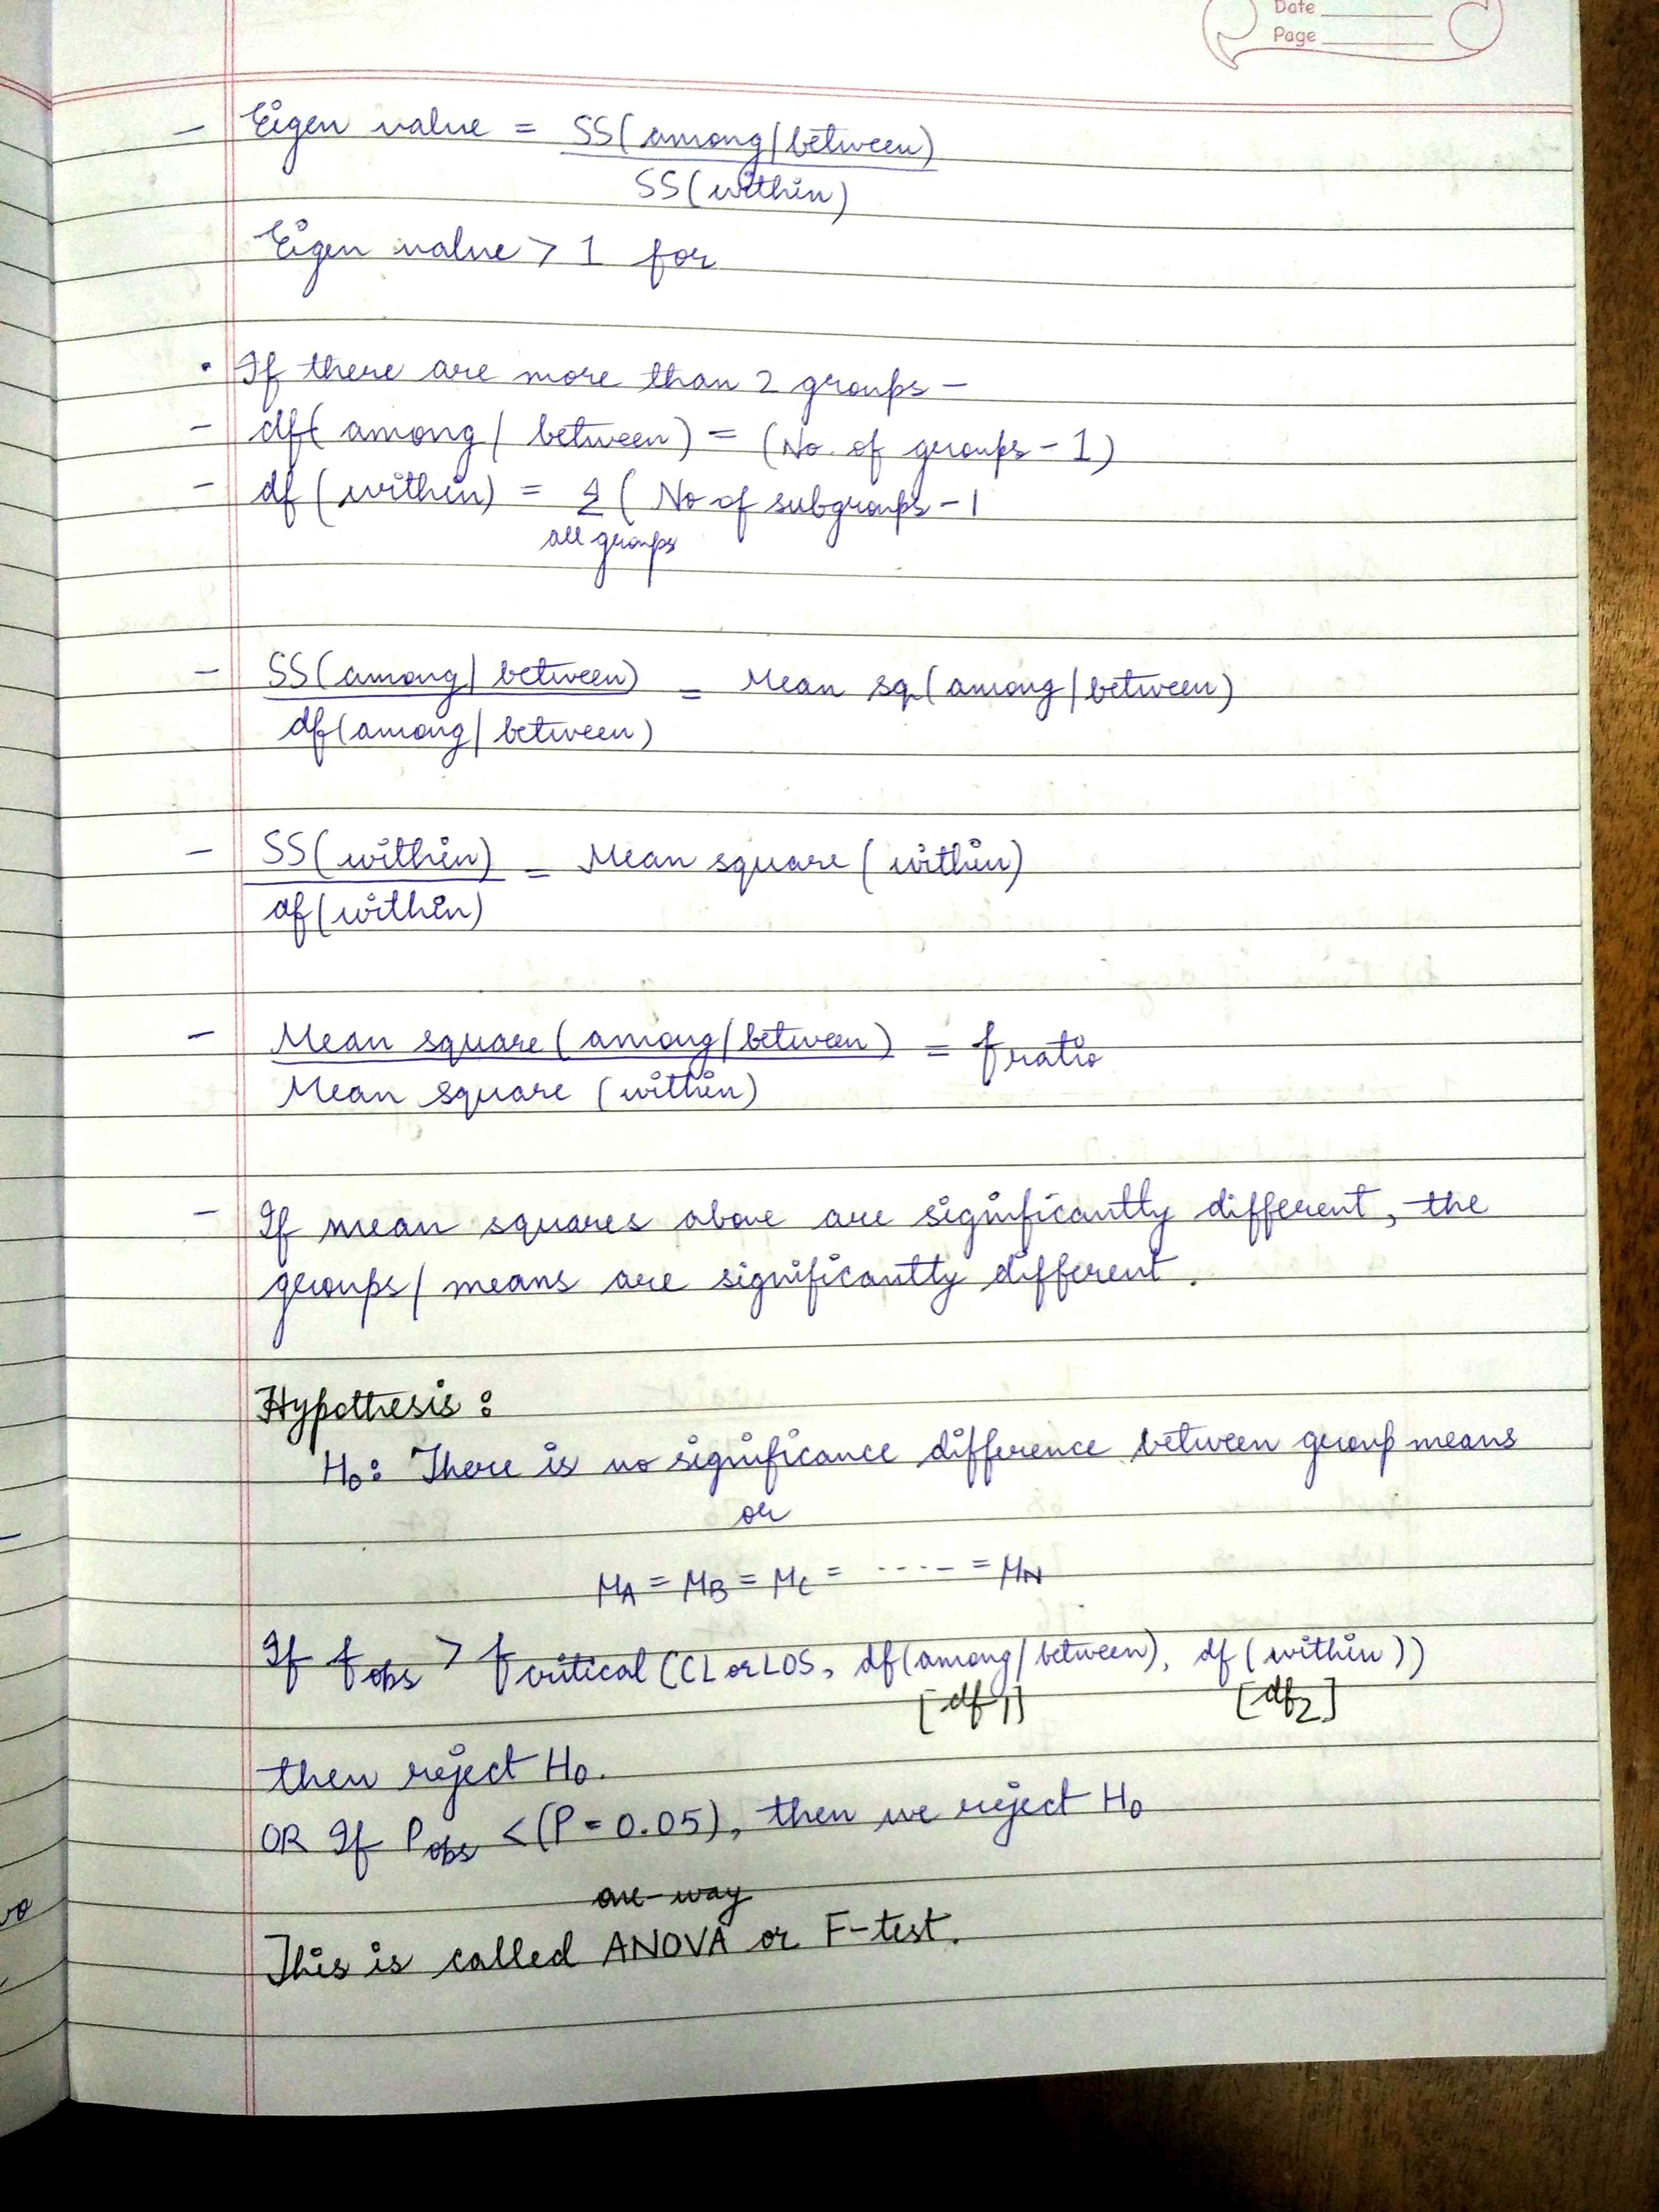 Date
Page
- Eigen value = SS(among/between)
SS(within)
Eigen value > 1 for
• If there are more than 2 groups -
- df( among/ between) = (No. of groups - 1)
- df (within) = Σ ( No of subgroups - 1
all groups
- SS(among/between) = Mean sq(among/between)
df(among/between)
- SS(within) = Mean square (within)
df(within)
- Mean square (among/between) = f ratio
Mean square (within)
- If mean squares above are significantly different, the
groups/ means are significantly different.
Hypothesis :
H₀: There is no significance difference between group means
or
μA = μB = μC = ..... = μN
If f obs > f critical (CL or LOS, df(among/between), df (within))
[df1] [df2]
then reject H₀.
OR If P obs < (P = 0.05), then we reject H₀
one-way
This is called ANOVA or F-test.